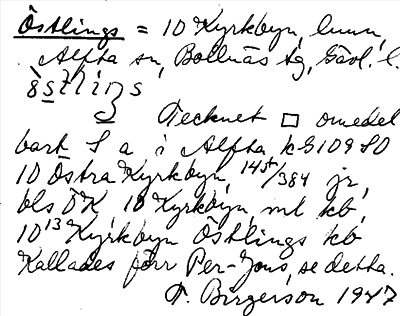 Östlings = 10 Kyrkbyn, hmn,
Alfta sn, Bollnäs tg, Gävl. l.
östlings
Tecknet □ omedel
bart S a i Alfta kG109 SO
10 Östra Kyrkbyn, 14st/384 jr,
bls ÖK 10 Kyrkbyn ml kb,
10¹³ Kyrkbyn Östlings kb
Kallades förr Per-Jons, se detta.
F. Birgerson 1947